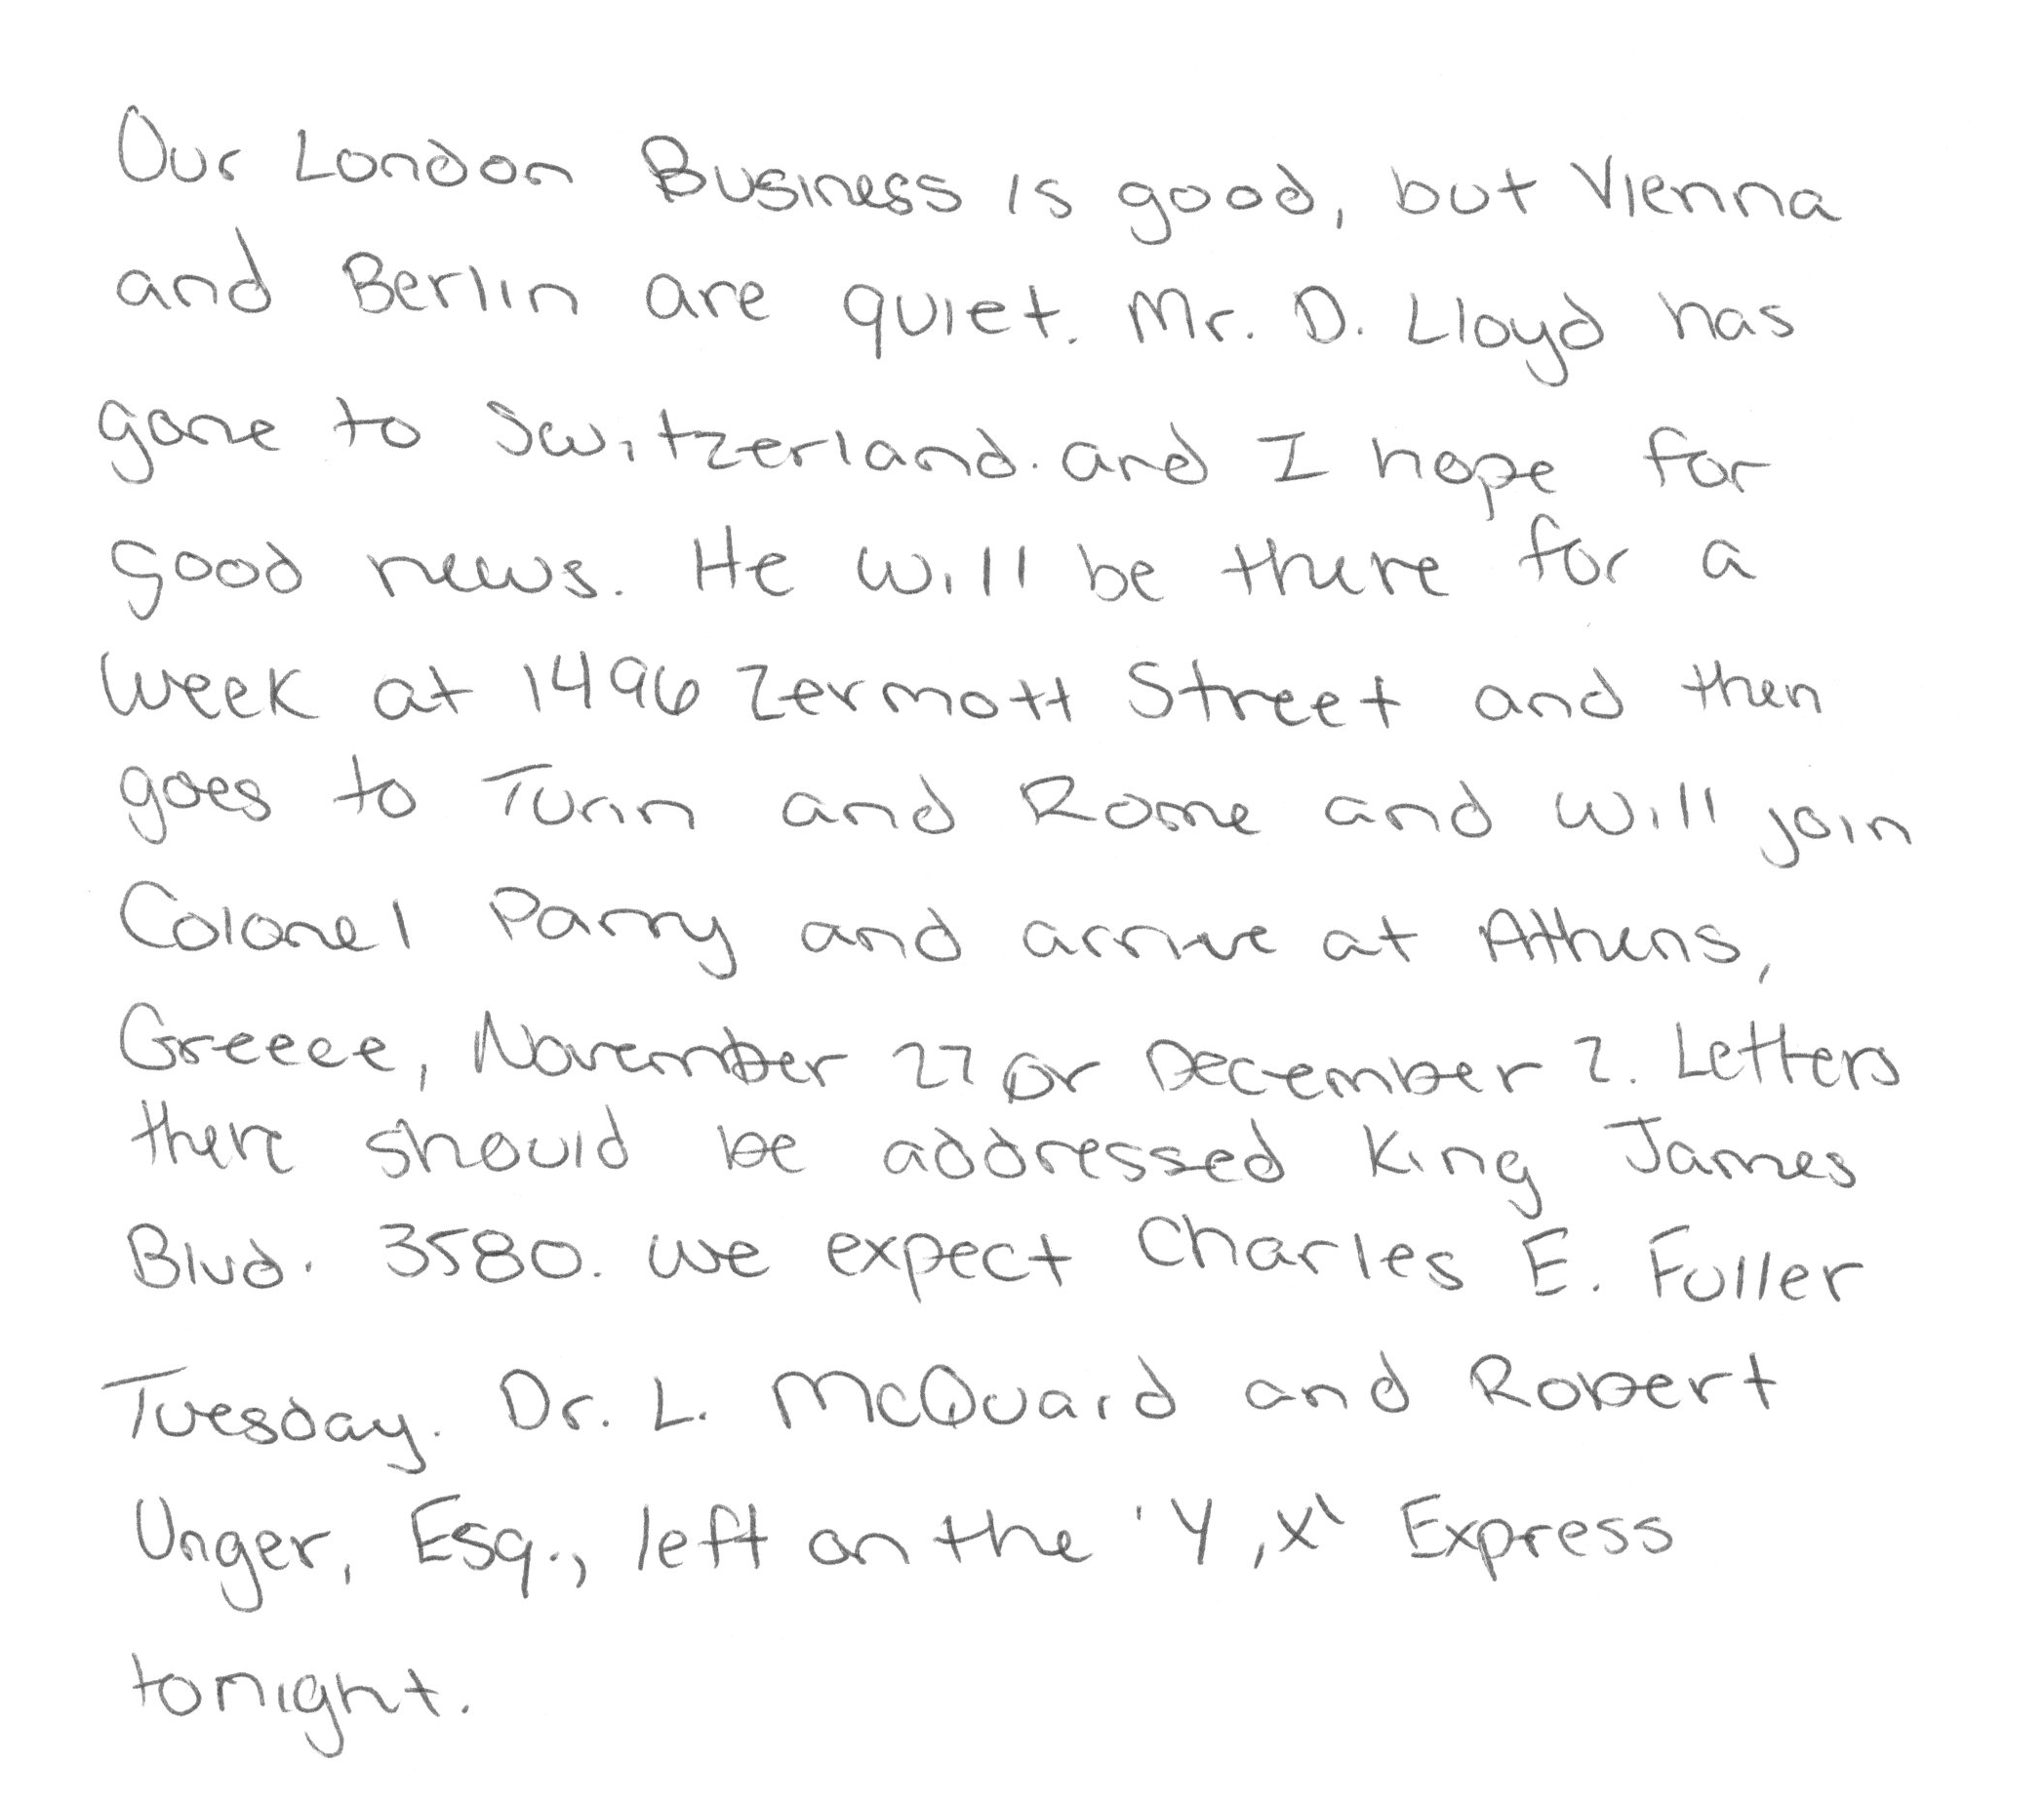 Our London Business is good, but Vienna
and Berlin are quiet. Mr. D. Lloyd has
gone to Switzerland. and I hope for
good news. He will be there for a
week at 1496 Zermott Street and then
goes to Turin and Rome and will join
Colonel Parry and arrive at Athens,
Greece, November 27 or December 2. Letters
there should be addressed King James
Blvd. 3580. We expect Charles E. Fuller
Tuesday. Dr. L. McQuard and Robert
Unger, Esq., left on the 'Y,X' Express
tonight.